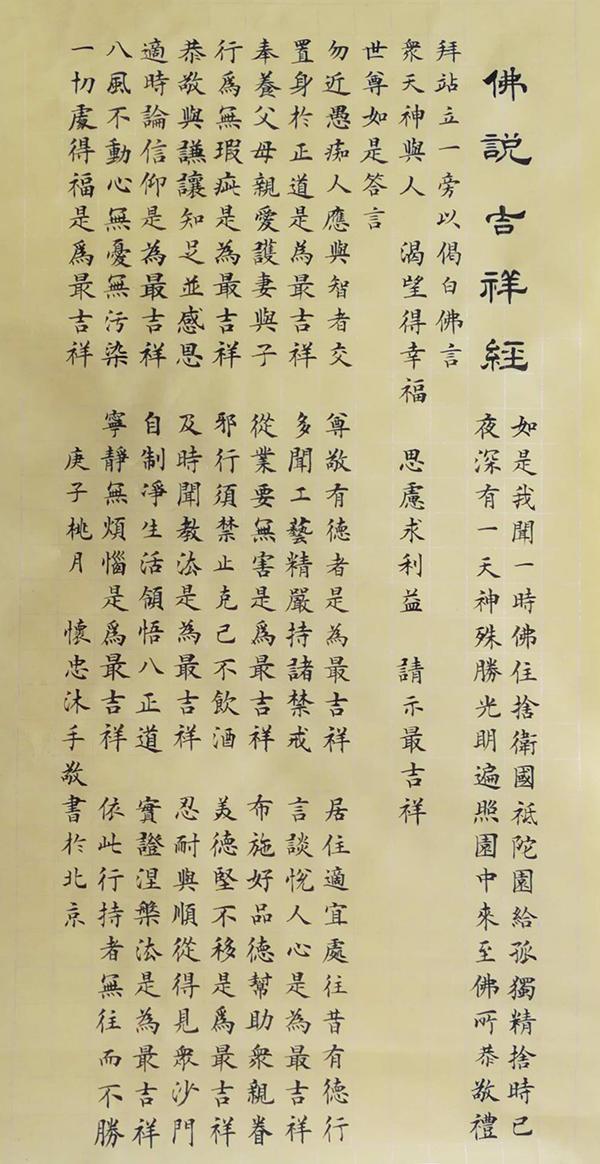 佛説吉祥經
如是我聞一時佛住捨衛國祗陀園給孤獨精捨時已
夜深有一天神殊勝光明遍照園中來至佛所恭敬禮
拜站立一旁以偈白佛言
衆天神與人 渴望得幸福 思慮求利益 請示最吉祥
世尊如是答言
勿近愚痴人應與智者交 尊敬有德者是為最吉祥 居住適宜處往昔有德行
置身於正道是為最吉祥 多聞工藝精嚴持諸禁戒 言談悅人心是為最吉祥
奉養父母親愛護妻與子 從業要無害是爲最吉祥 布施好品德幫助衆親眷
行爲無瑕疵是為最吉祥 邪行須禁止克己不飲酒 美德堅不移是爲最吉祥
恭敬與謙讓知足並感恩 及時聞教法是為最吉祥 忍耐與順從得見衆沙門
適時論信仰是為最吉祥 自制淨生活領悟八正道 實證涅槃法是為最吉祥
八風不動心無憂無污染 寧靜無煩惱是爲最吉祥 依此行持者無往而不勝
一切處得福是爲最吉祥 庚子桃月 懷忠沐手敬書於北京